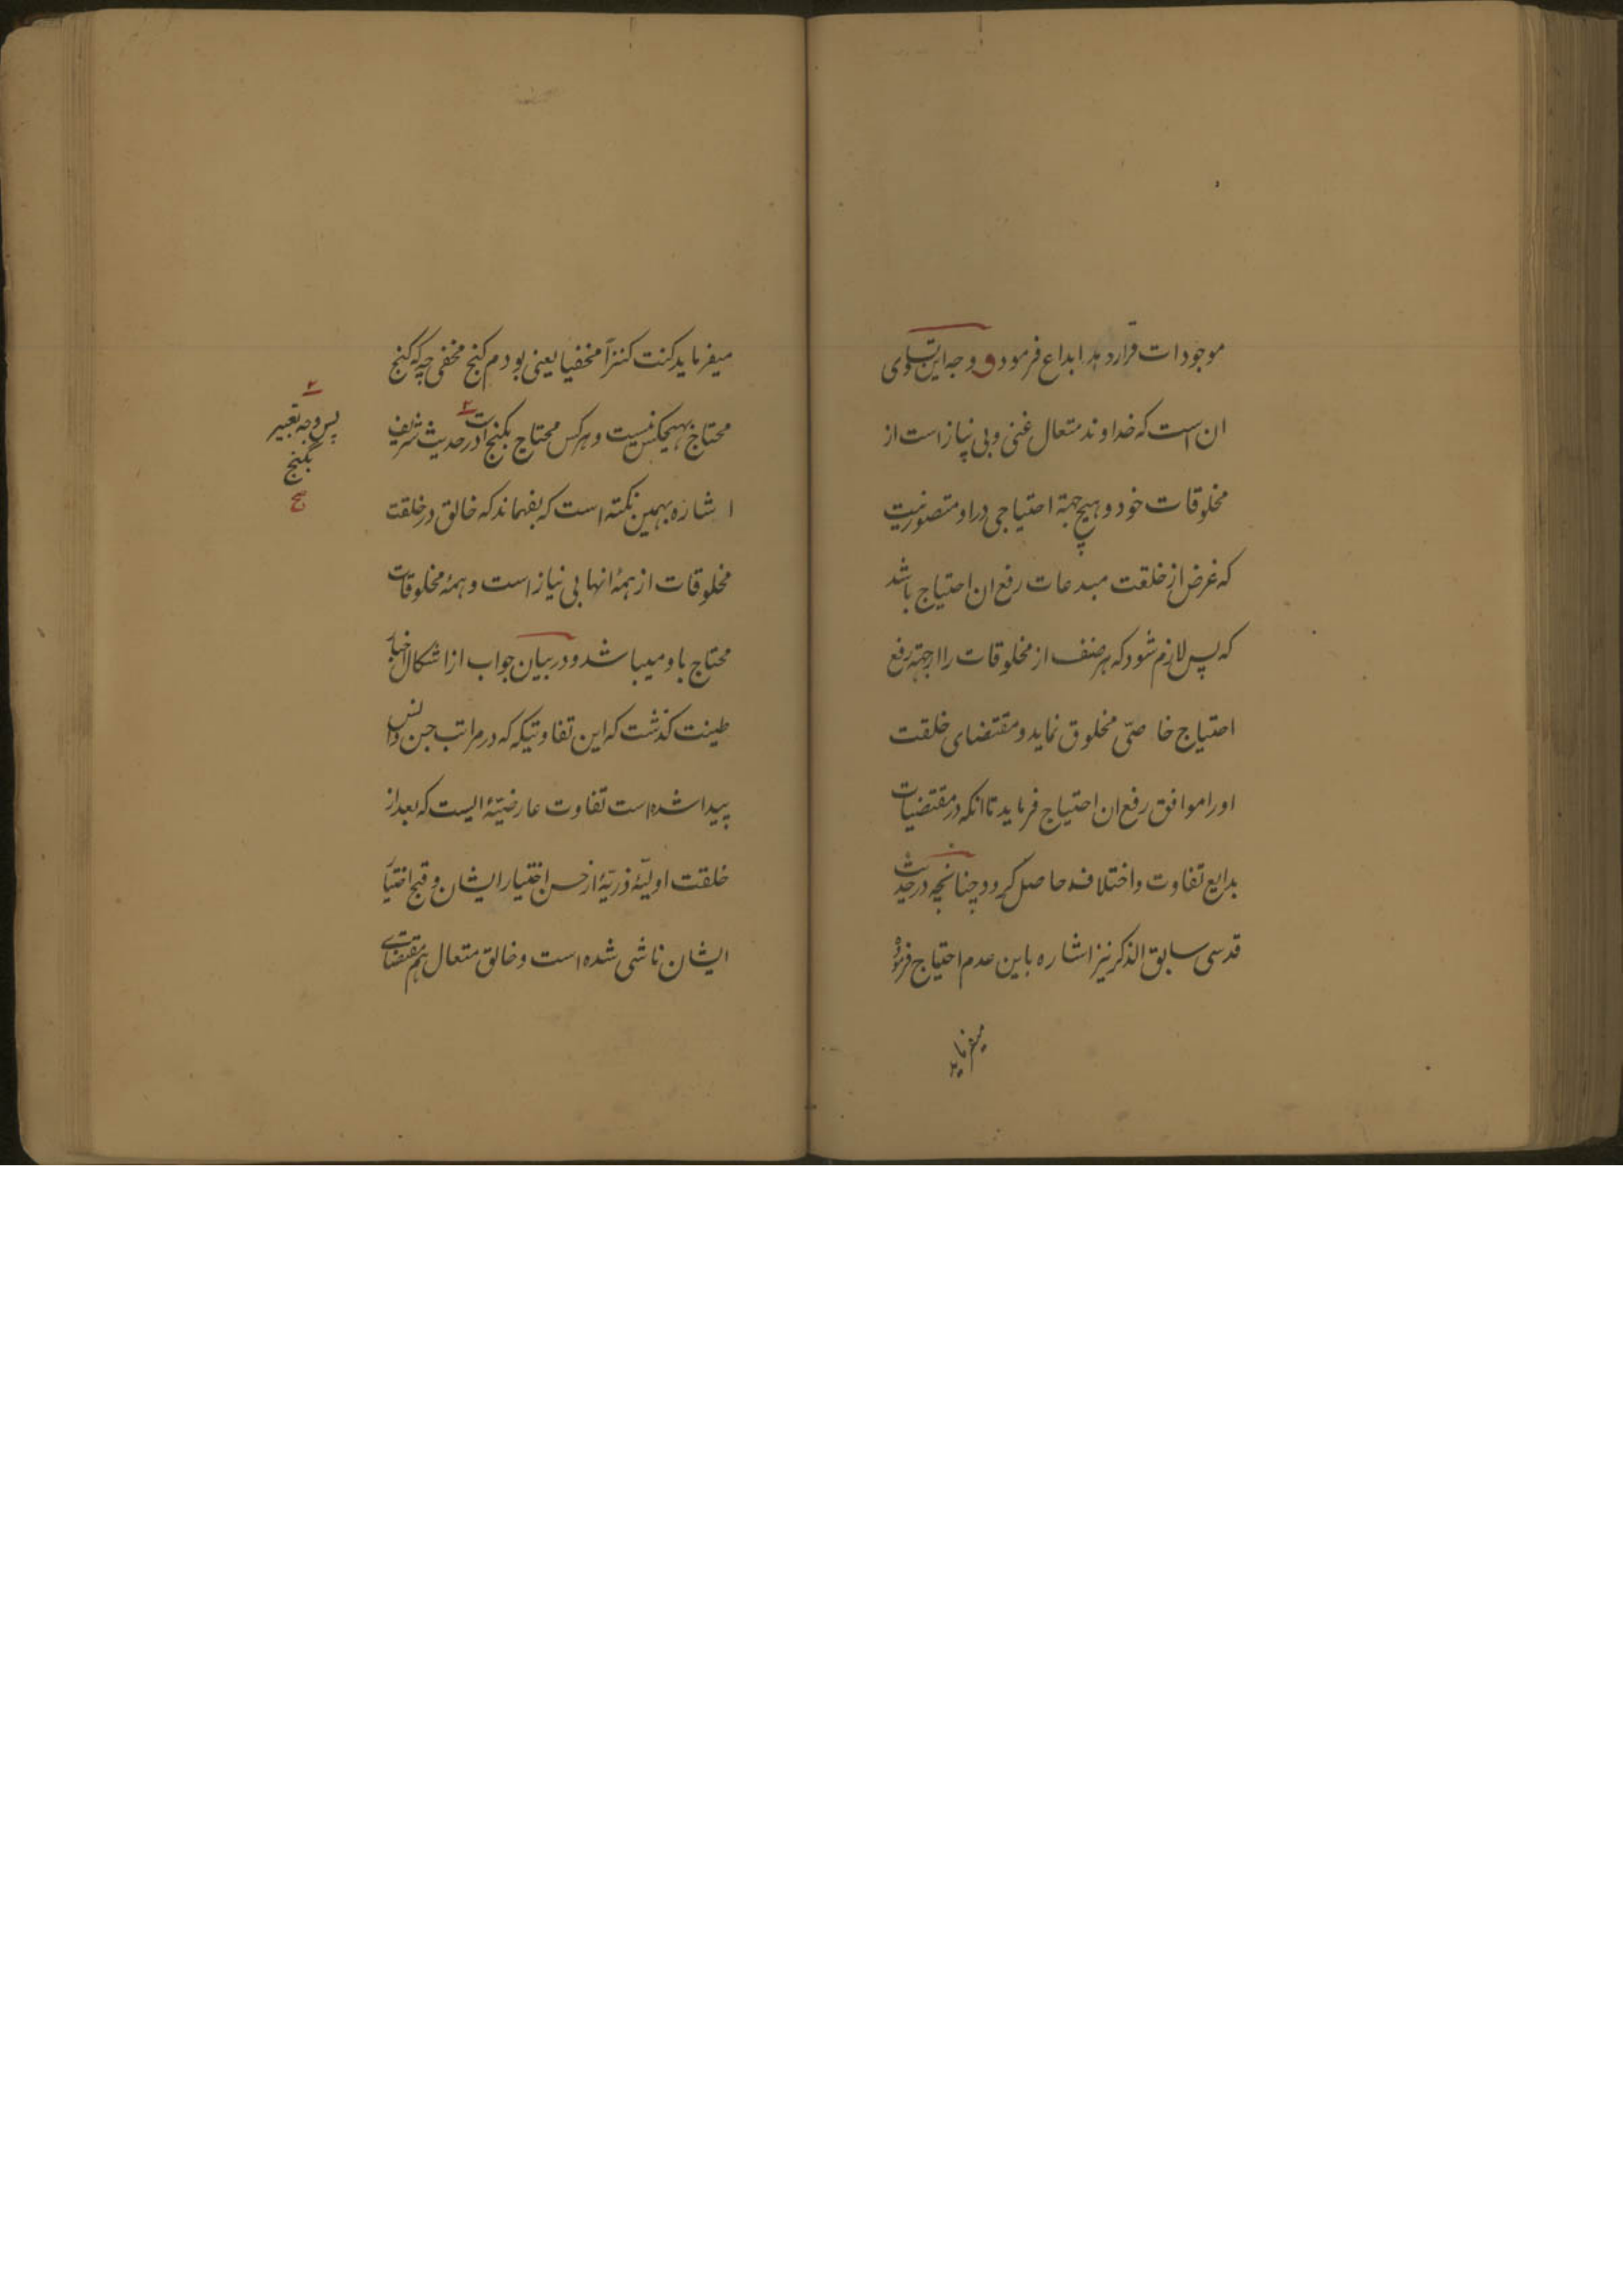 موجودات قرار دهد ابداع فرمود و وجه این تساوی
ان است که خداوند متعال غنی و بی نیاز است از
مخلوقات خود و هیچ جهة احتیاجی در او متصور نیست
که غرض از خلقت مبدعات رفع ان احتیاج باشد
که پس لازم شود که هر صنف از مخلوقات را از جهة رفع
احتیاج خاصّی مخلوق نماید و مقتضای خلقت
او را موافق رفع ان احتیاج فرماید تا انکه در مقتضیات
بدایع تفاوت و اختلاف حاصل کردد چنانچه در حدیث
قدسی سابق الذکر نیز اشاره باین عدم احتیاج فرموده
میفرماید
میفرماید کنت کنزاً مخفیا یعنی بودم کنج مخفی چه که کنج
محتاج بهیچکس نیست و هر کس محتاج بکنج است در حدیث شریف
پس وجه تعبیر
بکنج
صح
اشاره بهمین نکته است که بفهماند که خالق در خلقت
مخلوقات از همهٔ انها بی نیاز است و همهٔ مخلوقات
محتاج باو میباشد و در بیان جواب از اشکال اخبار
طینت کذشت که این تفاوتیکه که در مراتب جن و انس
پیدا شده است تفاوت عارضیّهٔ ایست که بعد از
خلقت اولیّهٔ ذریّهٔ از حسن اختیار ایشان و قبح اختیار
ایشان ناشی شده است و خالق متعال هم مقتضای